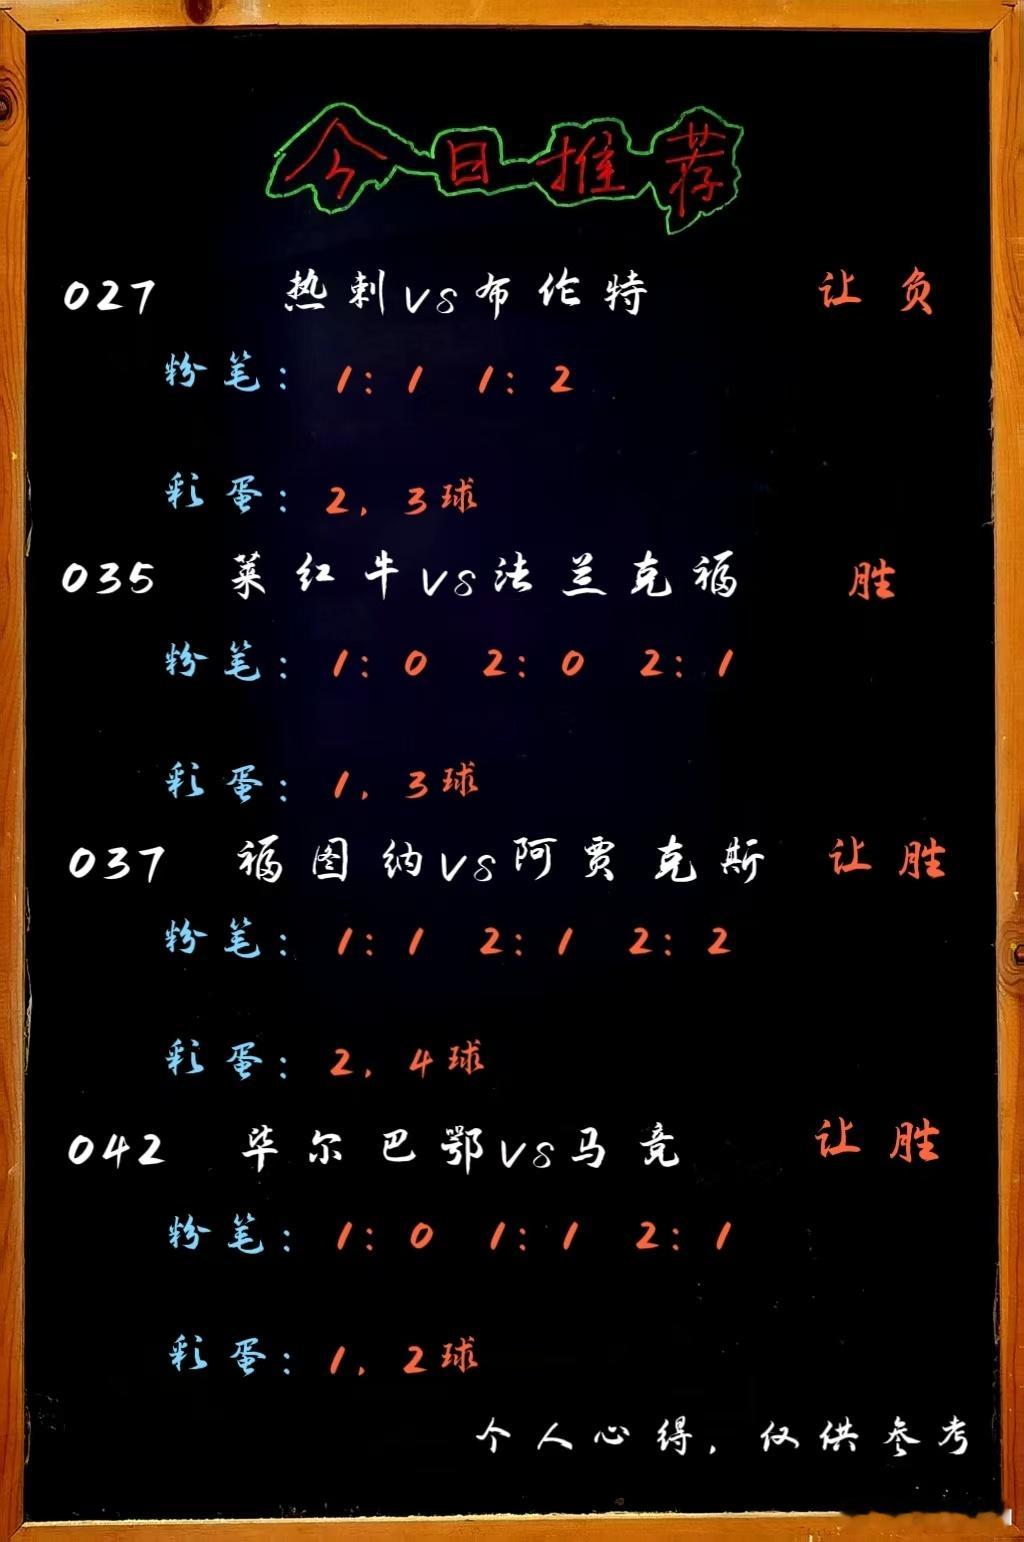 今日推荐
027 热刺vs布伦特 让负
粉笔: 1:1 1:2
彩蛋: 2, 3球
035 莱红牛vs法兰克福 胜
粉笔: 1:0 2:0 2:1
彩蛋: 1, 3球
037 福图纳vs阿贾克斯 让胜
粉笔: 1:1 2:1 2:2
彩蛋: 2, 4球
042 毕尔巴鄂vs马竞 让胜
粉笔: 1:0 1:1 2:1
彩蛋: 1, 2球
个人心得, 仅供参考